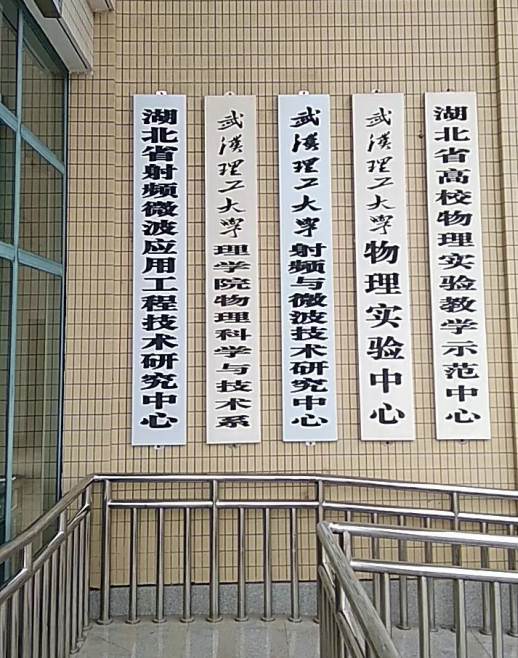 湖北省射频微波应用工程技术研究中心
武汉理工大学理学院物理科学与技术系
武汉理工大学射频与微波技术研究中心
武汉理工大学物理实验中心
湖北省高校物理实验教学示范中心